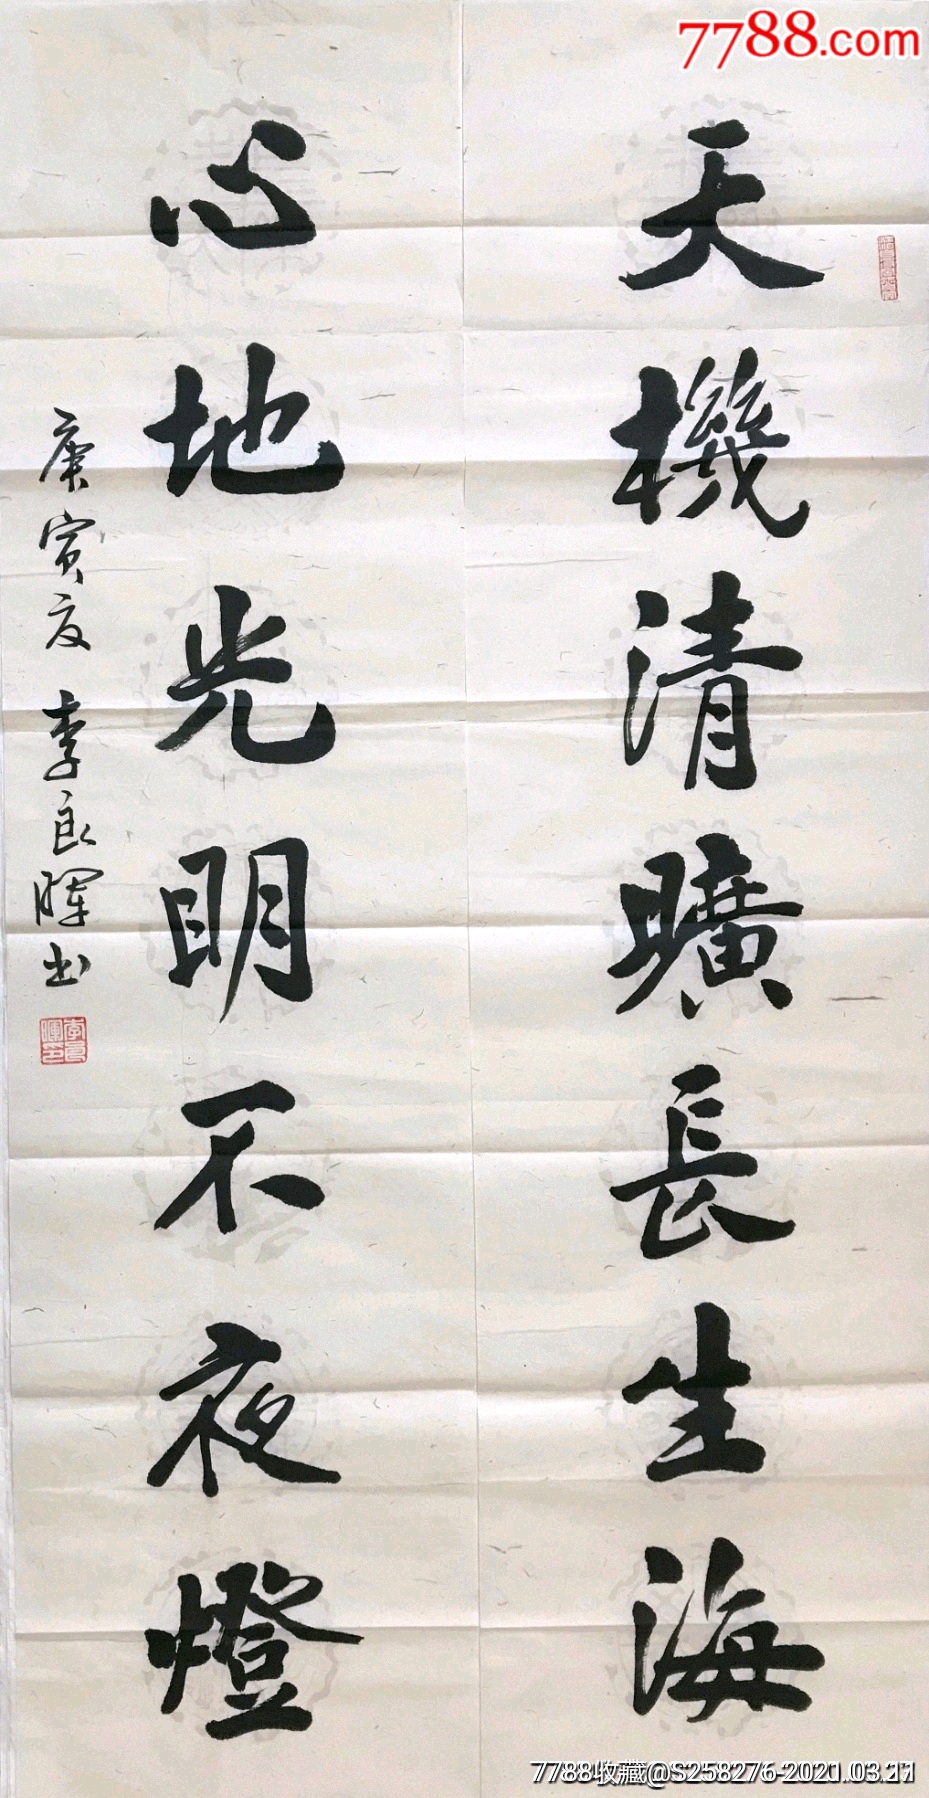 7788.com
天機清曠長生海
心地光明不夜燈
庚寅夏 李良暉書
7788收藏@S258276-2021.03.27